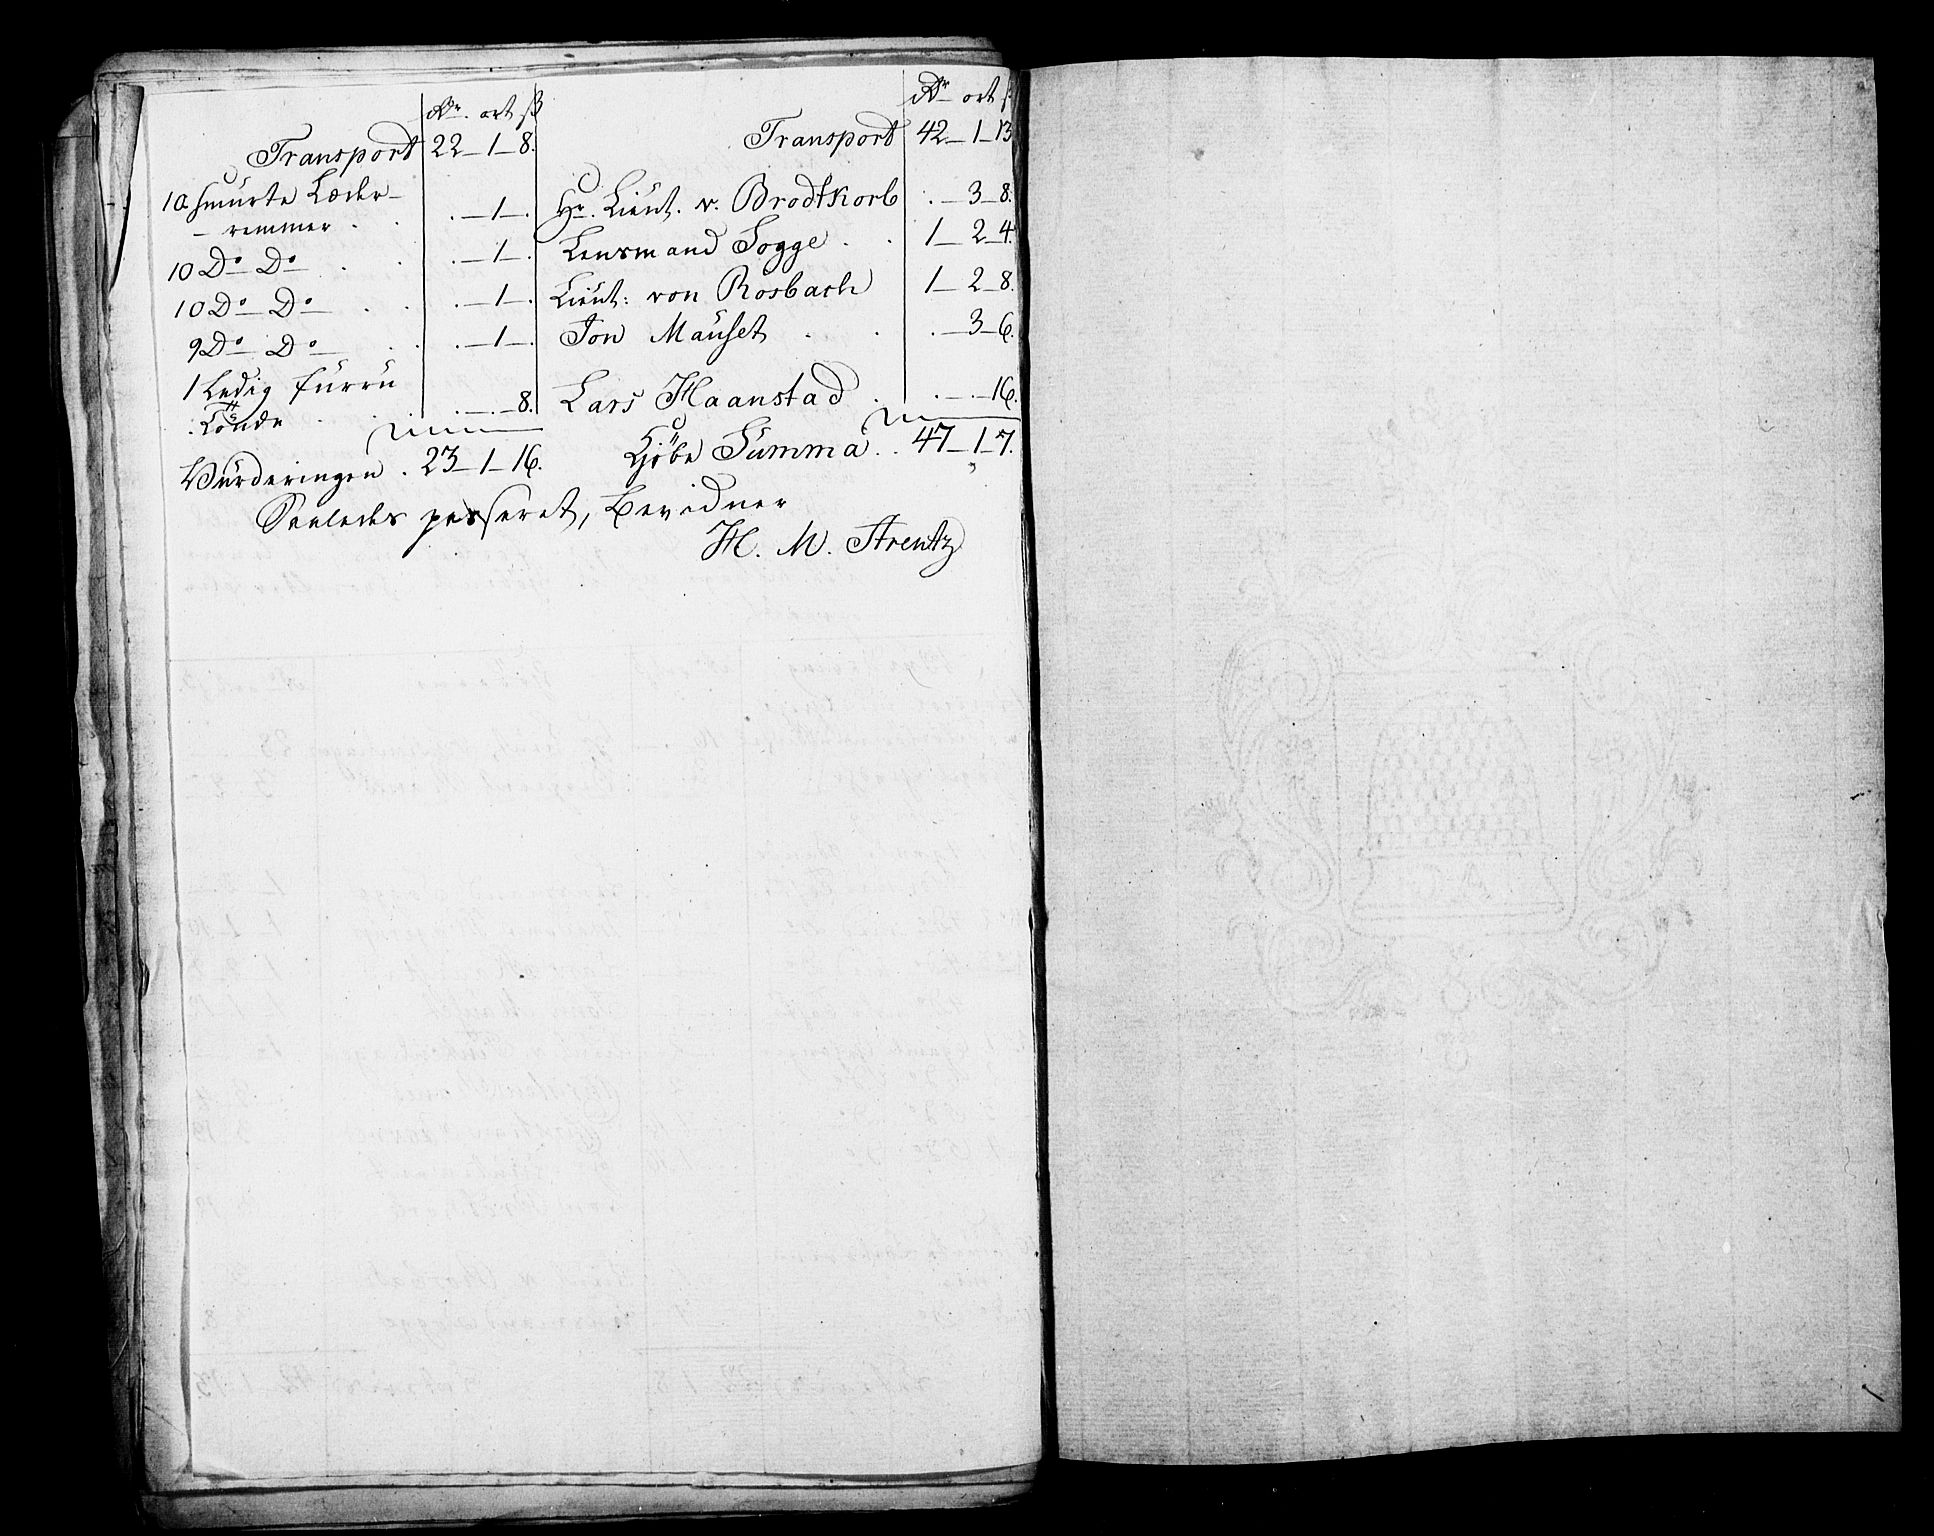 Rdr. ort ß Rdr ort ß
Transport 22 – 1 – 8. Transport 42 – 1 – 13
10 smurte Læder-
- remmer . . . – 1 – . Hr. Lieut. v. Brodtkorb . – 3 – 8.
10 Do Do . . . – 1 – . Lensmand Sogge . . 1 – 2 – 4.
10 Do Do . . . – 1 – . Lieut: von Rosbach 1 – 2 – 8.
9 Do Do . . . – 1 – . Jon Mauset . . . – 3 – 6.
1 Ledig furru
Tönde . . . – . – 8. Lars Haanstad . . – . – 16.
Vurderingen . 23 – 1 – 16. Kjöbe Summa . . 47 – 1 – 7.
Saaledes passeret, Bevidner
H. M. Arentz